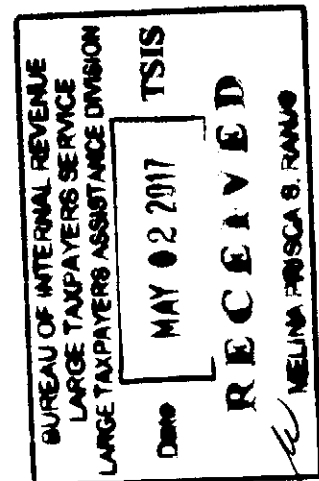 BUREAU OF INTERNAL REVENUE
LARGE TAXPAYERS SERVICE
LARGE TAXPAYERS ASSISTANCE DIVISION
Date MAY 02 2017 TSIS
RECEIVED
MELINA PRISCA S.